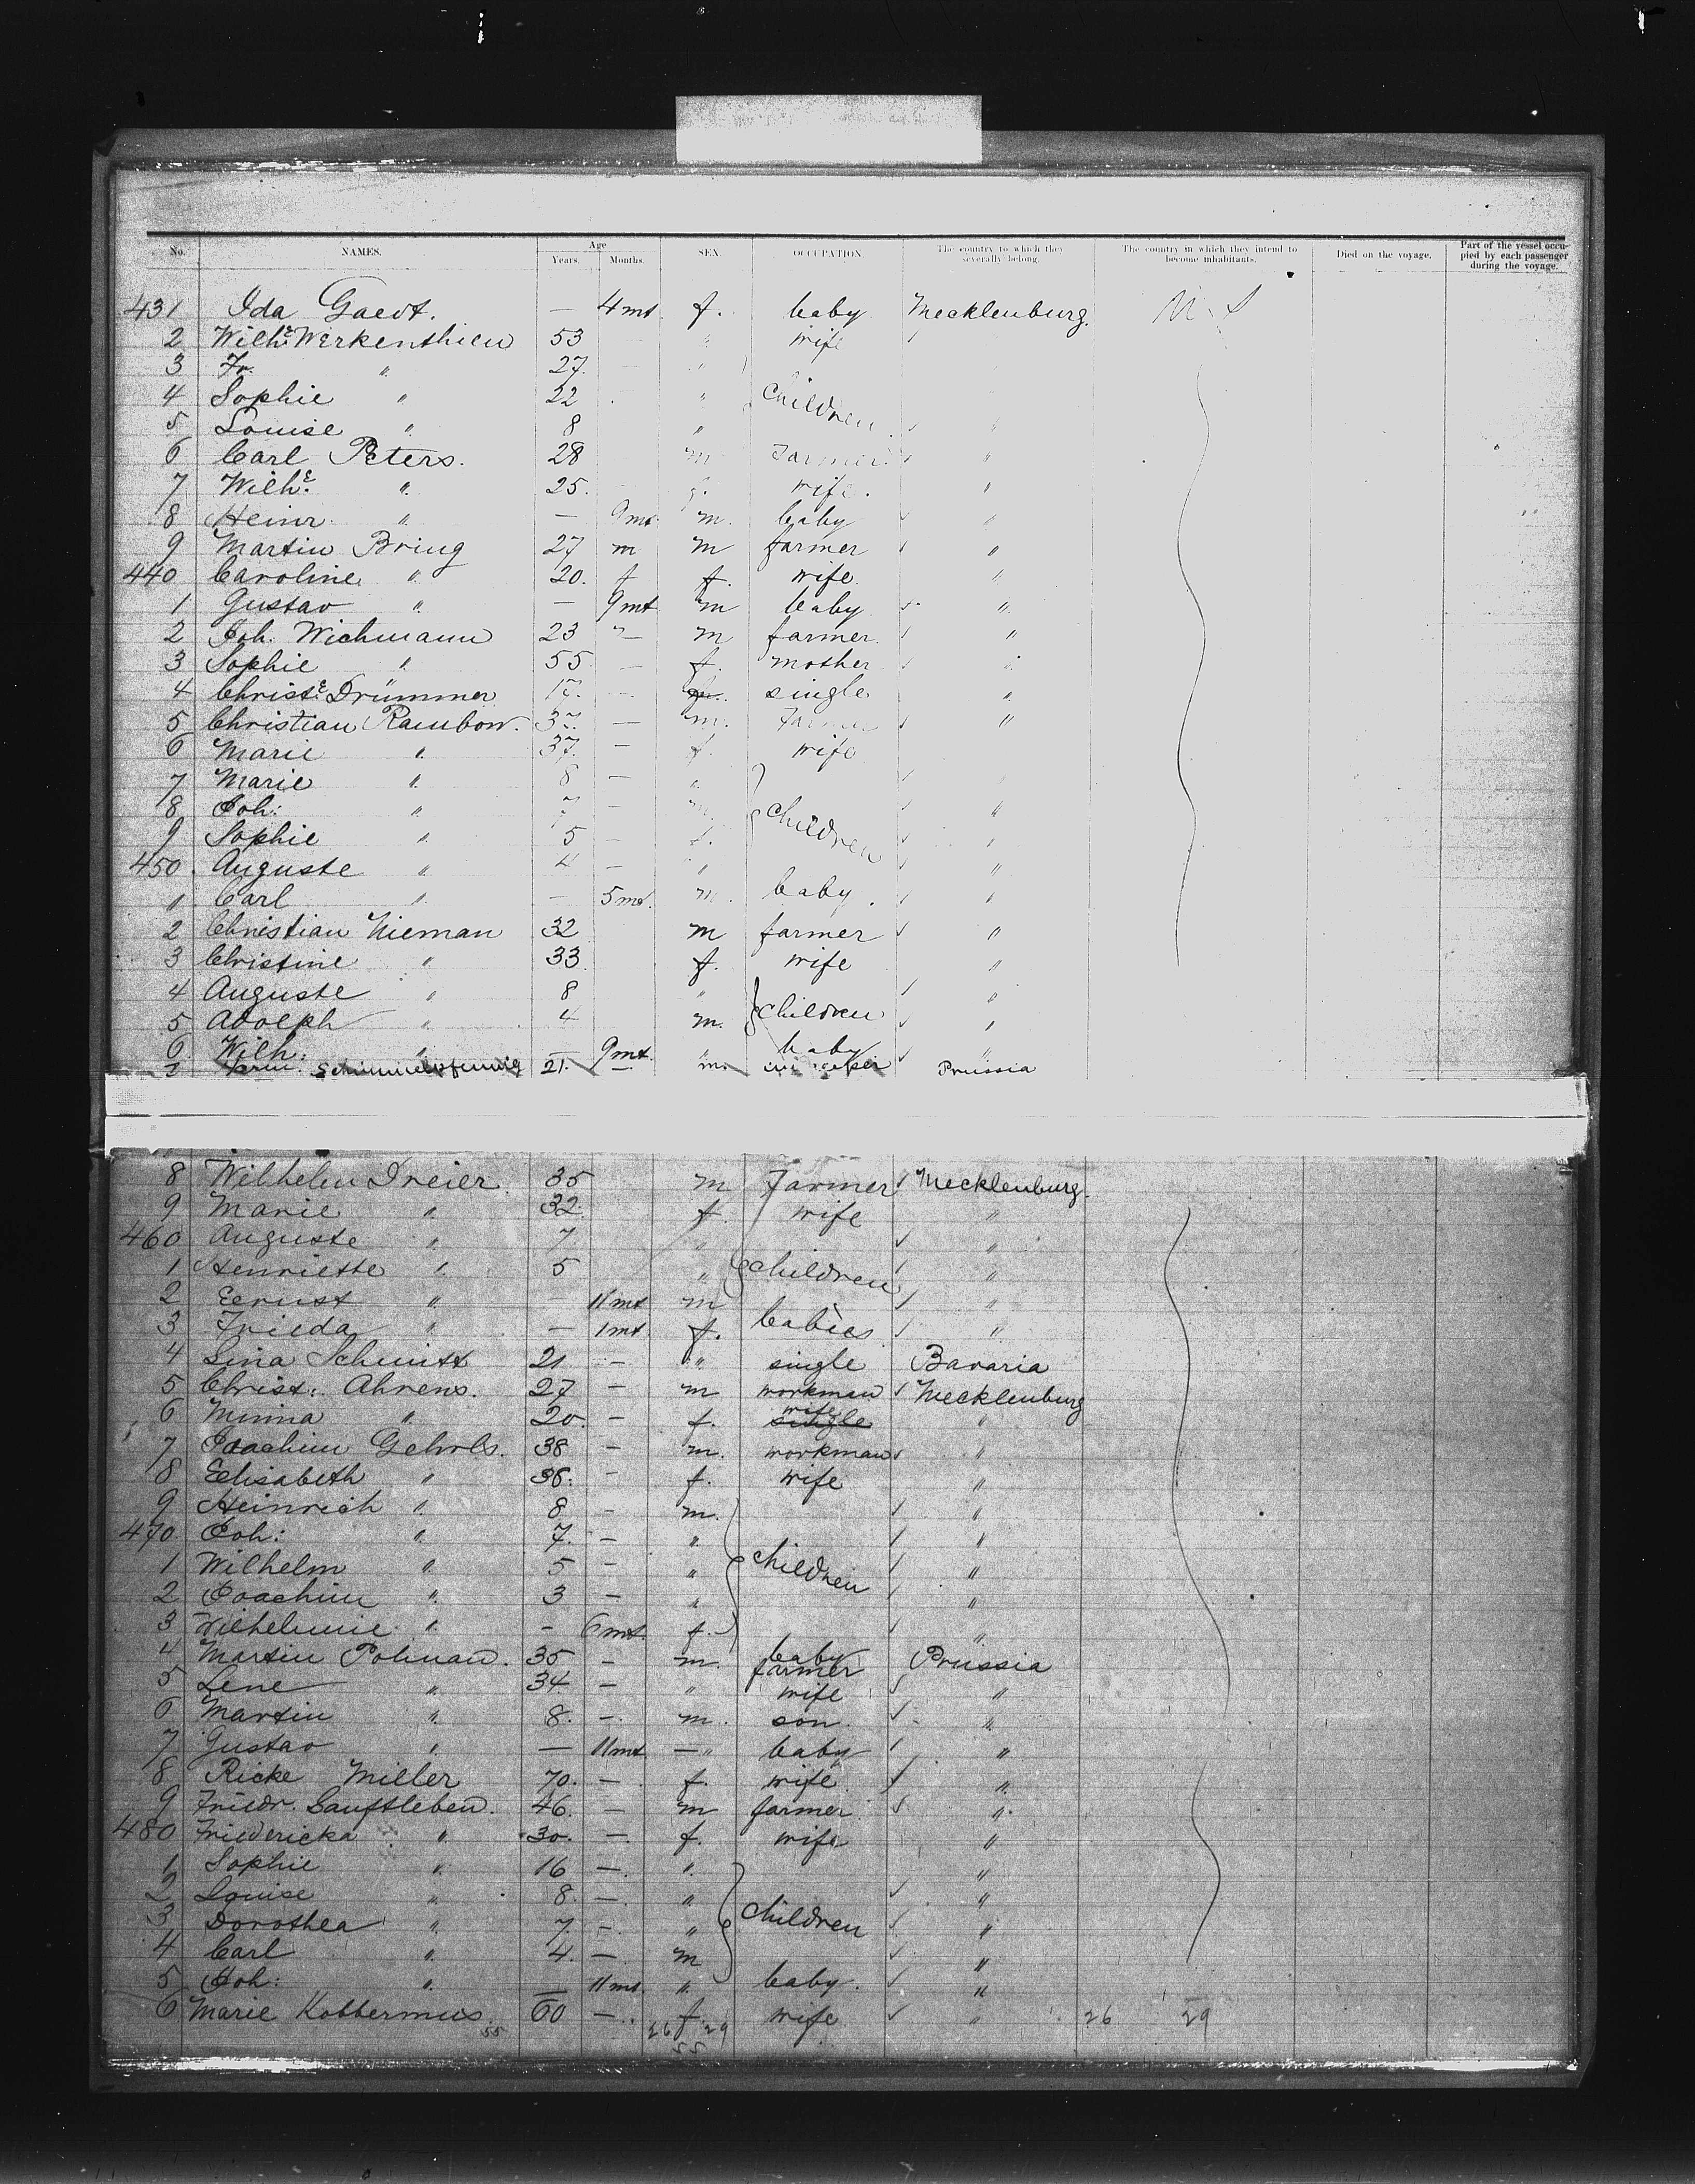 No. NAMES. Age Years. Months. SEX. OCCUPATION The country to which they severally belong. The country in which they intend to become inhabitants. Died on the voyage. Part of the vessel occupied by each passenger during the voyage.
431 Ida Gaedt. — 4 mt. f. baby Mecklenburg.
2 Wilhe. Werkenthien 53 " wife
3 Fr. " 27. — "
4 Sophie " 22 " Children
5 Louise " 8 "
6 Carl Peters. 28 m Farmer "
7 Wilhe. " 25. f. wife. "
8 Heinr. " — 9mt m. baby "
9 Martin Bring 27 m m farmer "
440 Caroline " 20. f f. wife "
1 Gustav " — 9mt m baby "
2 Joh. Wichmann 23 — m farmer "
3 Sophie " 55. — f. mother "
4 Christe. Drümmer 17. — single "
5 Christian Rambow. 37. — m. Farmer "
6 Marie " 37. — f. wife
7 Marie " 8 — "
8 Joh: " 7 — m children "
9 Sophie " 5 — f. "
450 Auguste " 4 — " "
1 Carl " — 5mt. m. baby. "
2 Christian Nieman 32 m farmer "
3 Christine " 33 f. wife "
4 Auguste " 8 " children "
5 Adolph " 4 m. "
6 Wilh: " — 9mt. " baby "
Schimmelpfennig 21. — m. Prussia
8 Wilhelm Dreier 35 m Farmer Mecklenburg.
9 Marie " 32. f. wife "
460 Auguste " 7 " "
1 Henriette " 5 " children "
2 Ernst " — 11mt m "
3 Frieda " — 1mt. f. babies "
4 Lina Schmitt 21 — " single Bavaria
5 Christ: Ahrens. 27 — m workman Mecklenburg
6 Minna " 20. — f. wife single "
7 Joachim Gehrls. 38 — m. workman "
8 Elisabeth " 36. — f. wife "
9 Heinrich " 8 — m. "
470 Joh: " 7. — " "
1 Wilhelm " 5 — " children "
2 Joachim " 3 — " "
3 Wilhelmie " — 6mt. f. baby "
4 Martin Polman. 35 — m. farmer Prussia
5 Lene " 34 — " wife "
6 Martin " 8. — m. son "
7 Gustav " — 11mt — " baby "
8 Ricke Miller 70. — f. wife "
9 Friedr. Sauftleben. 46. — m farmer "
480 Friedericka " 30. — f. wife "
1 Sophie " 16 — " "
2 Louise " 8. — " "
3 Dorothea " 7. — " children "
4 Carl " 4. — m "
5 Joh: " — 11mt. " baby. "
6 Marie Kobbermus 60 — f. wife " 26 29
55 26 29
55